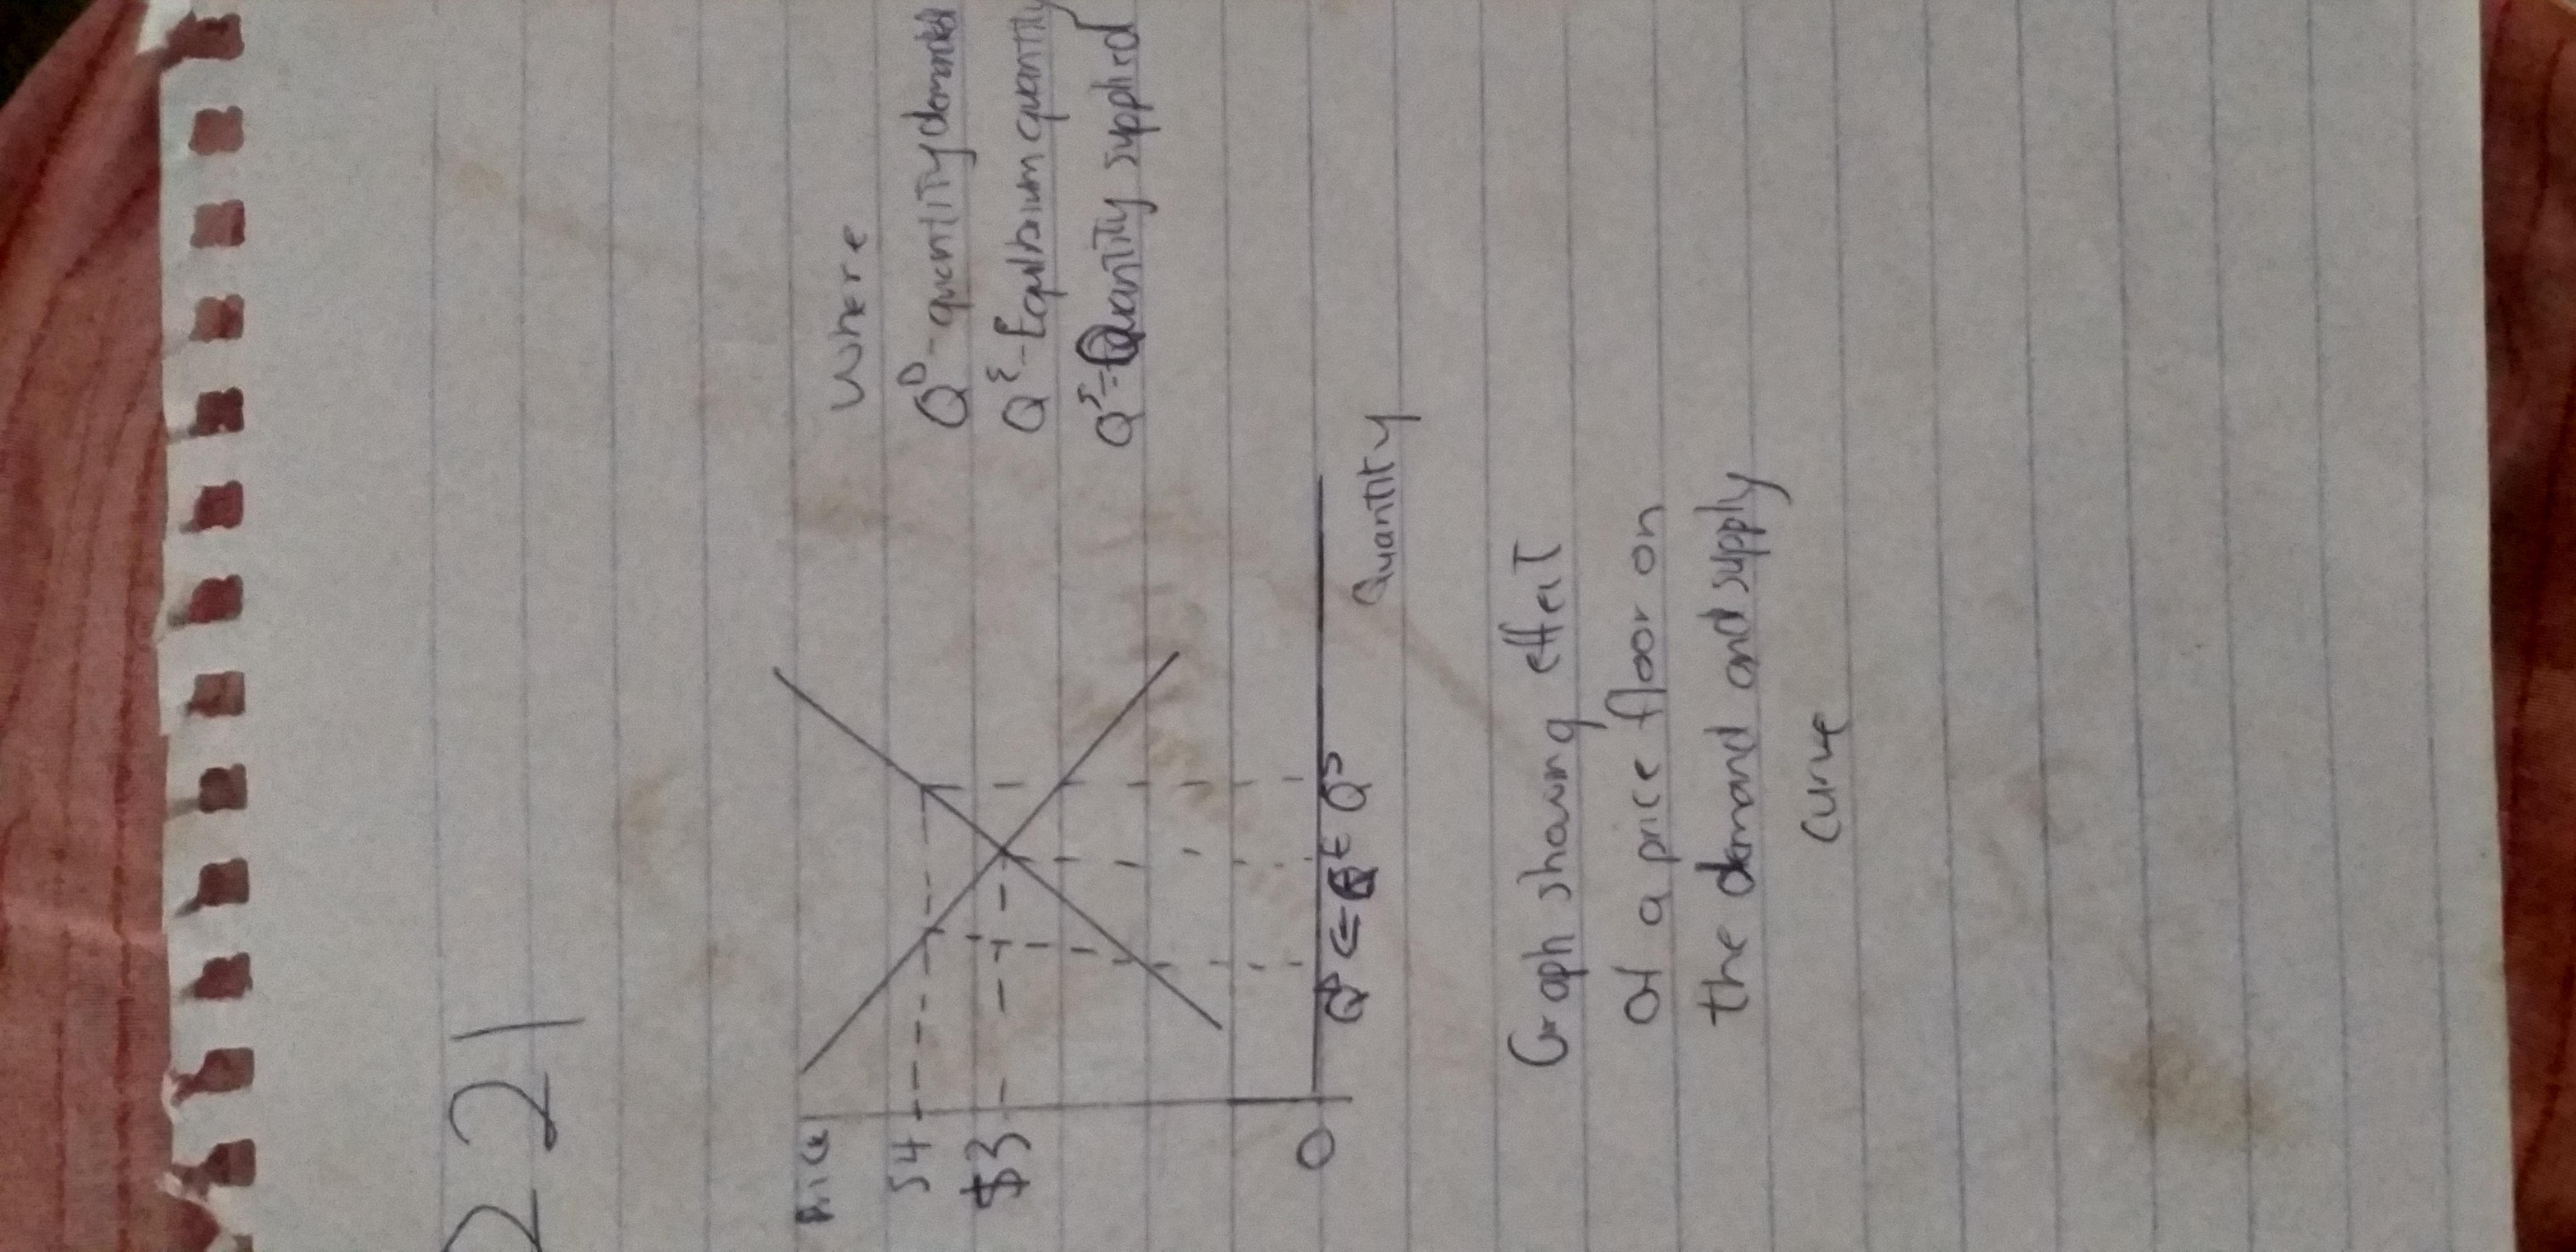 221
Price
$4
$3
0
Q^D <= Q^E Q^S
Quantity
Where
Q^D - quantity demanded
Q^E - Equilbrium quantity
Q^S = Quantity supplied
Graph showing effect
of a price floor on
the demand and supply
curve